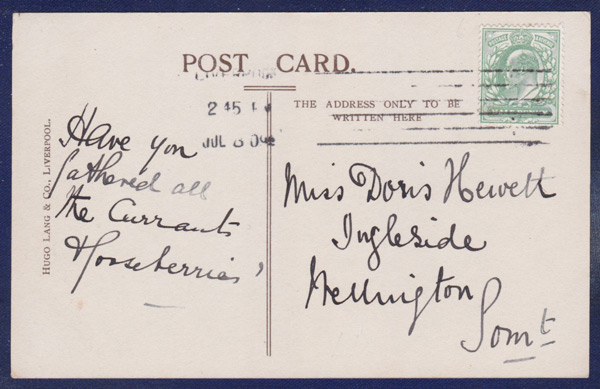 POST CARD.
LIVERPOOL
2 45 P
JUL 8 04
THE ADDRESS ONLY TO BE
WRITTEN HERE
HUGO LANG & CO., LIVERPOOL.
Have you
gathered all
the Currants
Gooseberries'
Miss Doris Hewett
Ingleside
Wellington
Somt